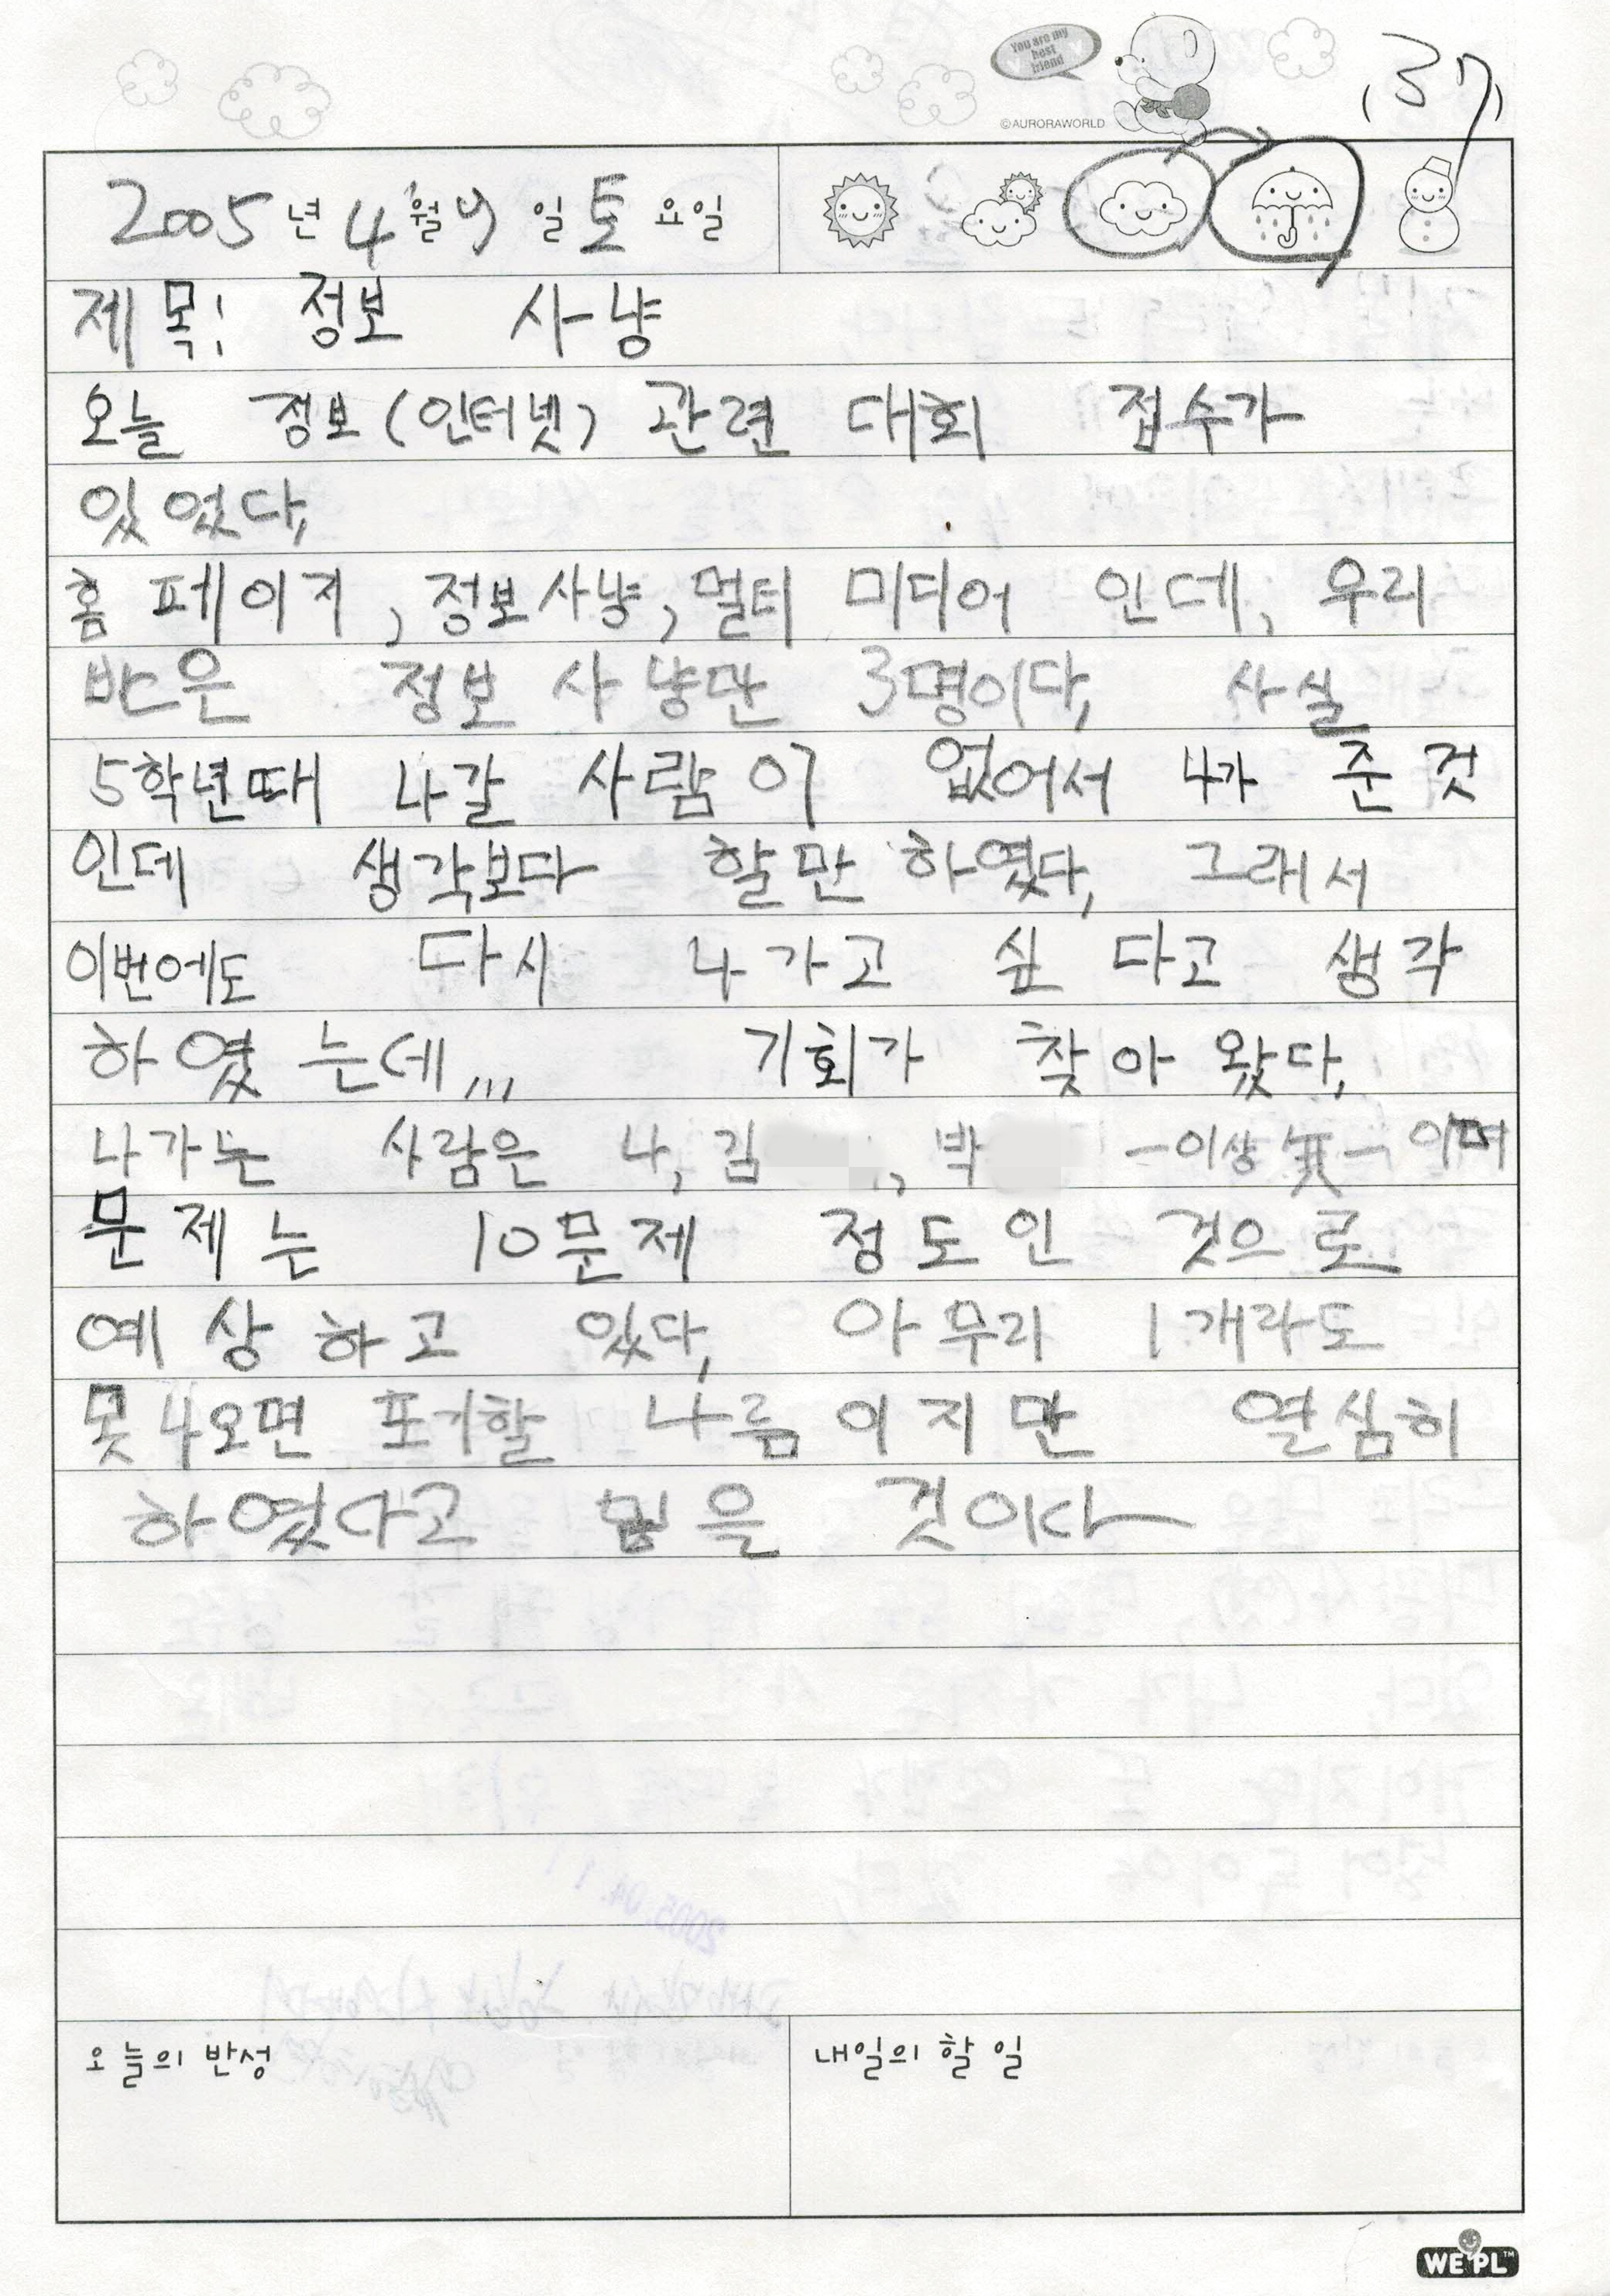 You are my
best
friend
©AURORAWORLD
(37)
2005년 4월 9일 토요일
제목: 정보 사냥
오늘 정보(인터넷) 관련 대회 접수가
있었다.
홈페이지, 정보사냥, 멀티미디어 인데, 우리
반은 정보 사냥만 3명이다. 사실
5학년때 나갈 사람이 없어서 나가 준 것
인데 생각보다 할만 하였다. 그래서
이번에도 다시 나가고 싶다고 생각
하였는데... 기회가 찾아 왔다.
나가는 사람은 나, 김 , 박 -이상 無- 이며
문제는 10문제 정도인 것으로
예상하고 있다. 아무리 1개라도
못 나오면 포기할 나름이지만 열심히
하였다고 믿을 것이다
오늘의 반성
내일의 할 일
WE PL™